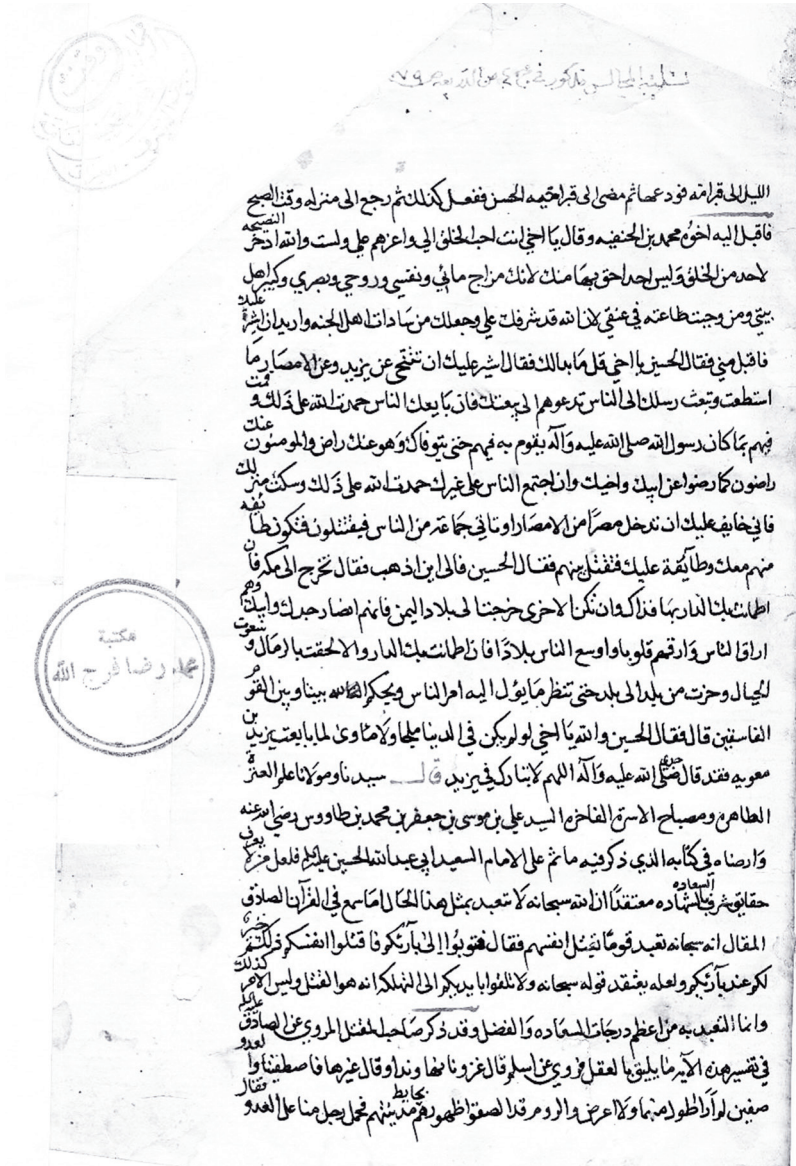 تسلية المجالس مذكور في ج ٤ من الذريعة ص ١٧٩
الليل الى قبر امه فودعها ثم مضى الى قبر اخيه الحسن ففعل كذلك ثم رجع الى منزله وقت الصبح
فاقبل اليه اخوه محمد بن الحنفيه وقال يا اخي انت احب الخلق الي واعزهم علي ولست والله ادخر النصيحه
لاحد من الخلق وليس احد احق بها منك لانك مزاج مائي ونفسي وروحي وبصري وكبير اهل
بيتي ومن وجبت طاعته في عنقي لان الله قد شرفك علي وجعلك من سادات اهل الجنه واريد ان اشير عليك
فاقبل مني فقال الحسين يا اخي قل ما بدالك فقال اشير عليك ان تتنحى عن يزيد وعن الامصار ما
استطعت وتبعث رسلك الى الناس تدعوهم الى بيعتك فان بايعك الناس حمدت الله على ذلك وقمت
فيهم بما كان رسول الله صلى الله عليه وآله يقوم به فيهم حتى يتوفاك وهو عنك راض والمومنون عنك
راضون كما رضوا عن ابيك واخيك وان اجتمع الناس على غيرك حمدت الله على ذلك وسكت منزلك
فاني خايف عليك ان تدخل مصرًا من الامصار او تاتي جماعة من الناس فيقتتلون فتكون طايفه
منهم معك وطائفة عليك فتقتل بينهم فقال الحسين فالى اين اذهب فقال تخرج الى مكه فان
اطمانت بك الدار بها فذاك وان تكن الاخرى خرجت الى بلاد اليمن فانهم انصار جدك وابيك وهم
اراق الناس وارقهم قلوبا واوسع الناس بلادا فان اطمانت بك الدار والا لحقت بالرمال وشعوب
الجبال وحزت من بلد الى بلد حتى تنظر ما يؤل اليه امر الناس ويحكم الله بيننا وبين القوم
الفاسقين قال فقال الحسين والله يا اخي لو لم يكن في الدنيا ملجا ولا ماوى لما بايعت يزيد بن
معويه فقد قال جدي صلى الله عليه وآله اللهم لا تبارك في يزيد قال سيدنا ومولانا علم العترة
الطاهره ومصباح الاسرة الفاخره السيد علي بن موسى بن جعفر بن محمد بن طاووس رضي الله عنه
وارضاه في كتابه الذي ذكر فيه ما تم على الامام السعيد ابي عبد الله الحسين عليه السلم فلعل من لا يعرف
حقايق شرف السعاده بالشهاده معتقدًا ان الله سبحانه لا تتعبد بمثل هذا الحال اما سمع في القرآن الصادق
المقال انه سبحانه تعبد قومًا بقتل انفسهم فقال فتوبوا الى بارئكم فاقتلوا انفسكم ذلكم خير
لكم عند بارئكم ولعله يعتقد قوله سبحانه ولا تلقوا بايديكم الى التهلكة انه هو القتل وليس الامر كذلك
وانما التعبد به من اعظم درجات السعاده والفضل وقد ذكر صاحب المقتل المروي عن الصادق عليه السلم
في تفسير هذه الآيه ما يليق بالعقل فروي عن اسلم قال غزونا نهاوند او قال غيرها فاصطفينا والعدو
صفين لم أر اطول منهما ولا اعرض والروم قد الصقوا ظهورهم بحايط مدينتهم فحمل رجل منا على العدو فقال
مكتبة
محمد رضا فرج الله